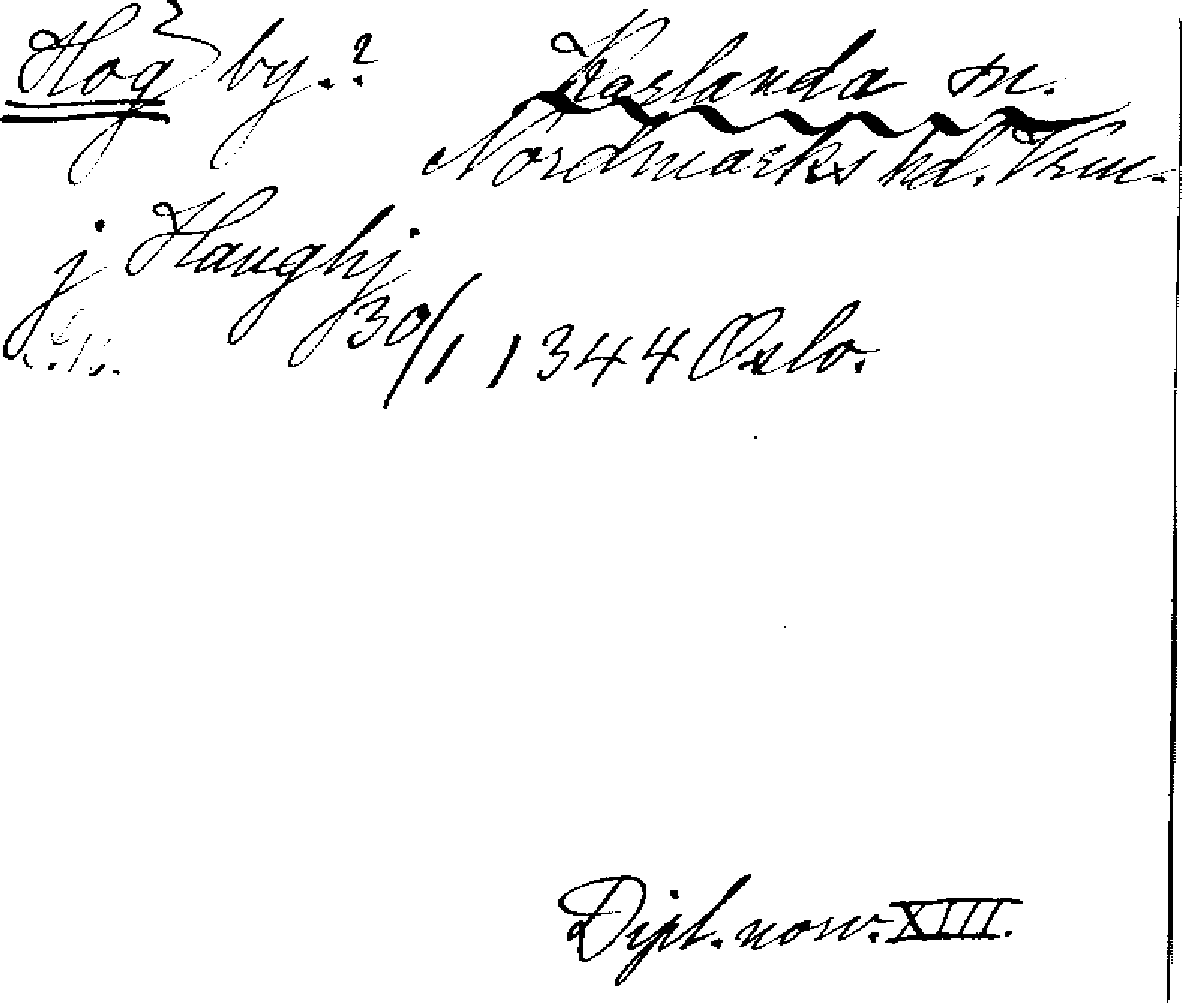 Hog by.? Karlanda sn.
Nordmarks hd. Vrm.
j Haughj
30/1 1344 Oslo.
Dipl. norv. XIII.